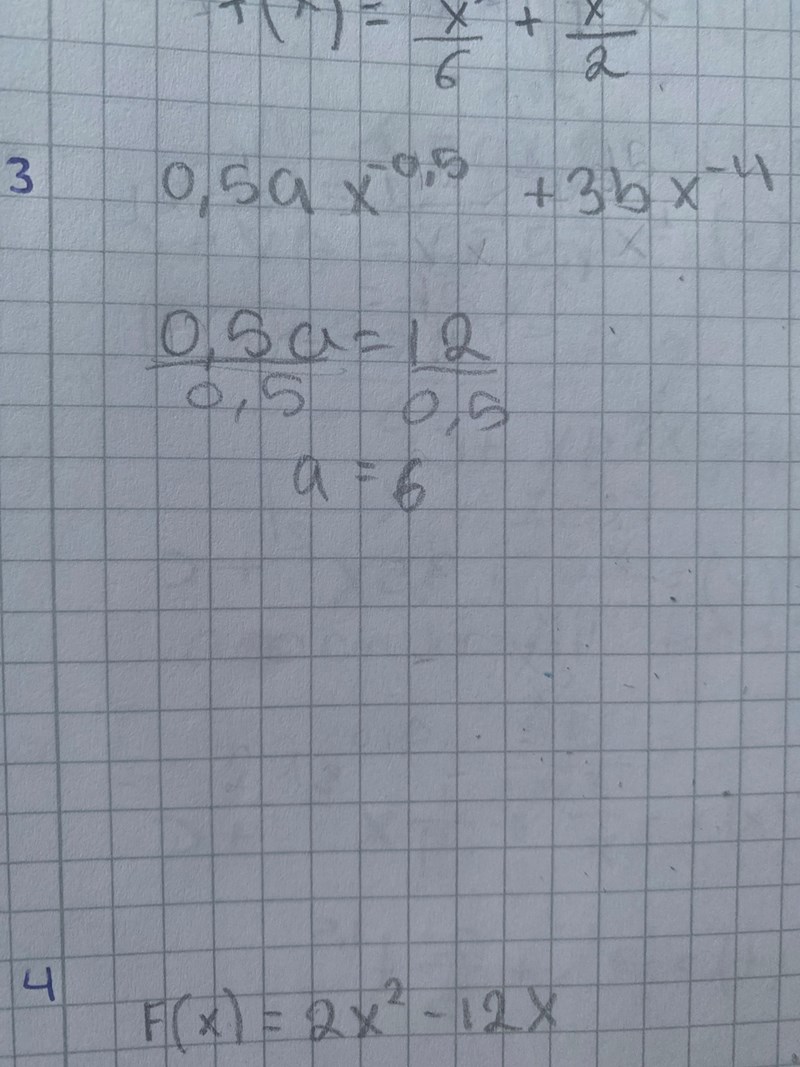 f(x) = x/6 + x/2
3 0,5a x^-0,5 + 3b x^-4
0,5a/0,5 = 12/0,5
a = 6
4 F(x) = 2x² - 12x